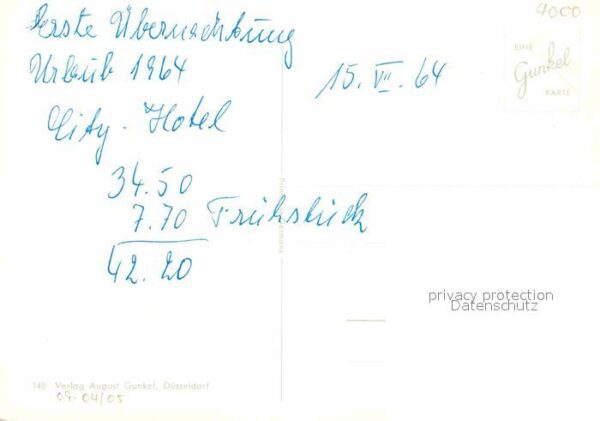 erste Übernachtung
Urlaub 1964
City-Hotel
34.50
7.70 Frühstück
42.20
15. VII. 64
4000
EINE
Gunkel
KARTE
privacy protection
Datenschutz
148 Verlag August Gunkel, Düsseldorf
09.04/05